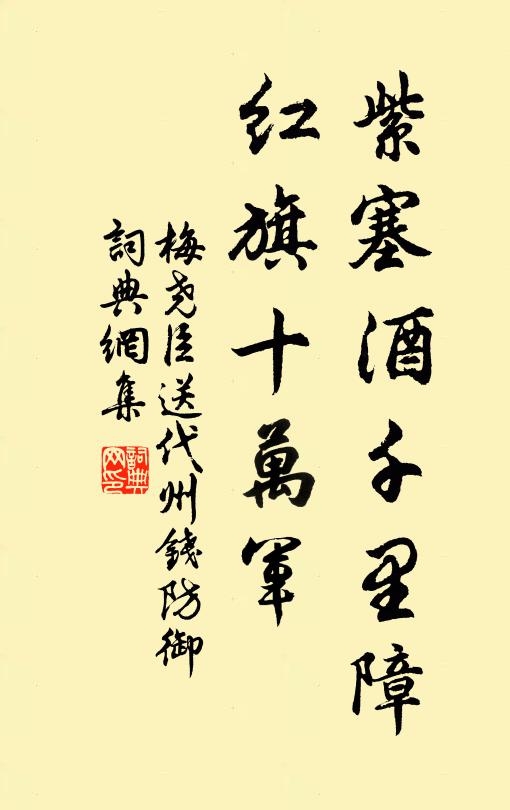 紫塞酒千里障
紅旗十萬軍
梅堯臣送代州錢防御
詞典網集
詞典網印